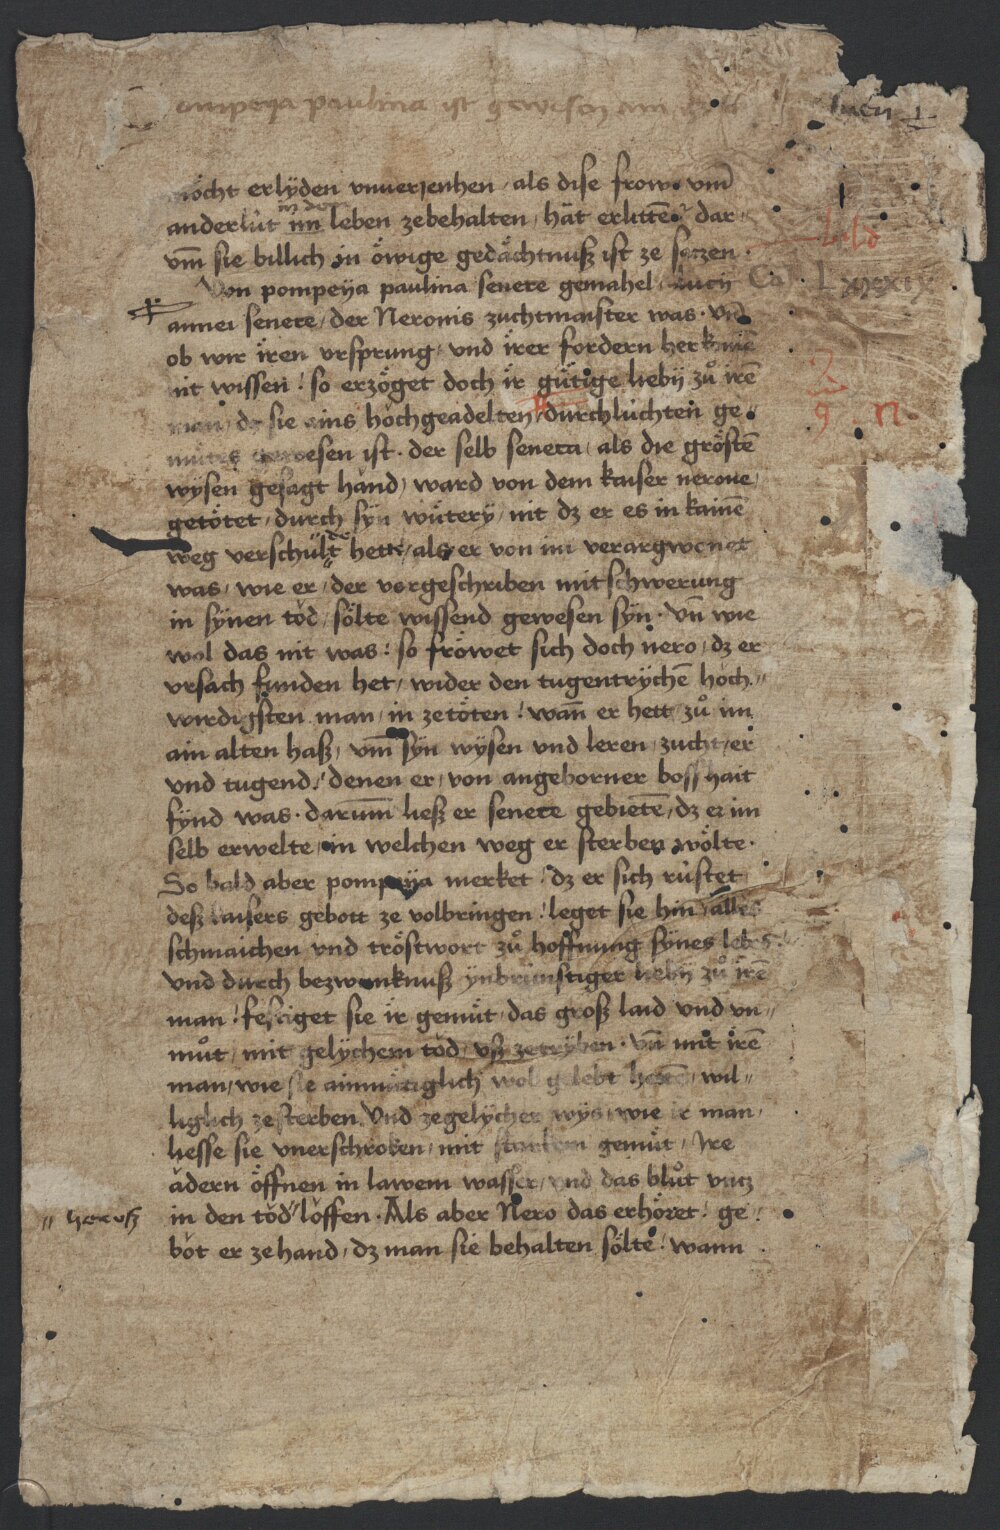 ompeya paulina ist gewesen ain
lucii
möcht erlyden vnuerjenhen / als dise frow vm̄
in dem
anderlüt im leben zebehalten / hät erlitten / dar
vm̄ sie billich in öwige gedächtnuß ist ze seczen · bild
Von pompeya paulina senece gemahel lucii Ca · Lxxxxix
annei senece / der Neronis zuchtmaister was · vnd
ob wir iren vrsprung / vnd irer fordern herkomē
nit wissen / so erzöget doch ir gütige lieby zů irē
man / dz sie ains hochgeadelten / durchlüchten ge
9 n
mütes gewesen ist · der selb seneca / als die gröstē
wysen gesagt hand / ward von dem kaiser nerone /
getötet / durch syn wütery / nit dz er es in kainē
weg verschült hett / als er von im verargwonet
was / wie er / der vorgeschriben mitschwerung
in synen tod / sölte wissend gewesen syn · vn̄ wie
wol das nit was / so fröwet sich doch nero / dz er
vrsach funden het / wider den tugentrychē hoch //
wirdigsten man / in zetöten / wan̄ er hett / zů im
ain alten haß / vm̄ syn wysen vnd leren / zucht / er
vnd tugend / denen er / von angeborner bosshait
fynd was · darum̄ ließ er senece gebietē / dz er im
selb erwelte / in welchen weg er sterben wölte ·
So bald aber pompeya merket / dz er sich rüstet
deß kaisers gebott ze volbringen / leget sie hin alles
schmaichen vnd tröstwort zů hoffnung synes lebēs /
vnd durch bezwanknuß ynbrünstiger lieby zů irē
man / festiget sie ir gemüt / das groß laid vnd vn //
můt / mit gelychem tod / vß zetryben · vn̄ mit irē
man / wie sie ainmütiglich wol gelebt hettē / wil //
liglich ze sterben. Vnd zegelycher wys / wie ir man /
liesse sie vnerschroken / mit starkem gemüt / Ire
ädern öffnen in lawem wasser / vnd das blůt vncz
// heruß in den tod // löffen · Als aber Nero das erhöret / ge /
böt er ze hand / dz man sie behalten sölte / wann